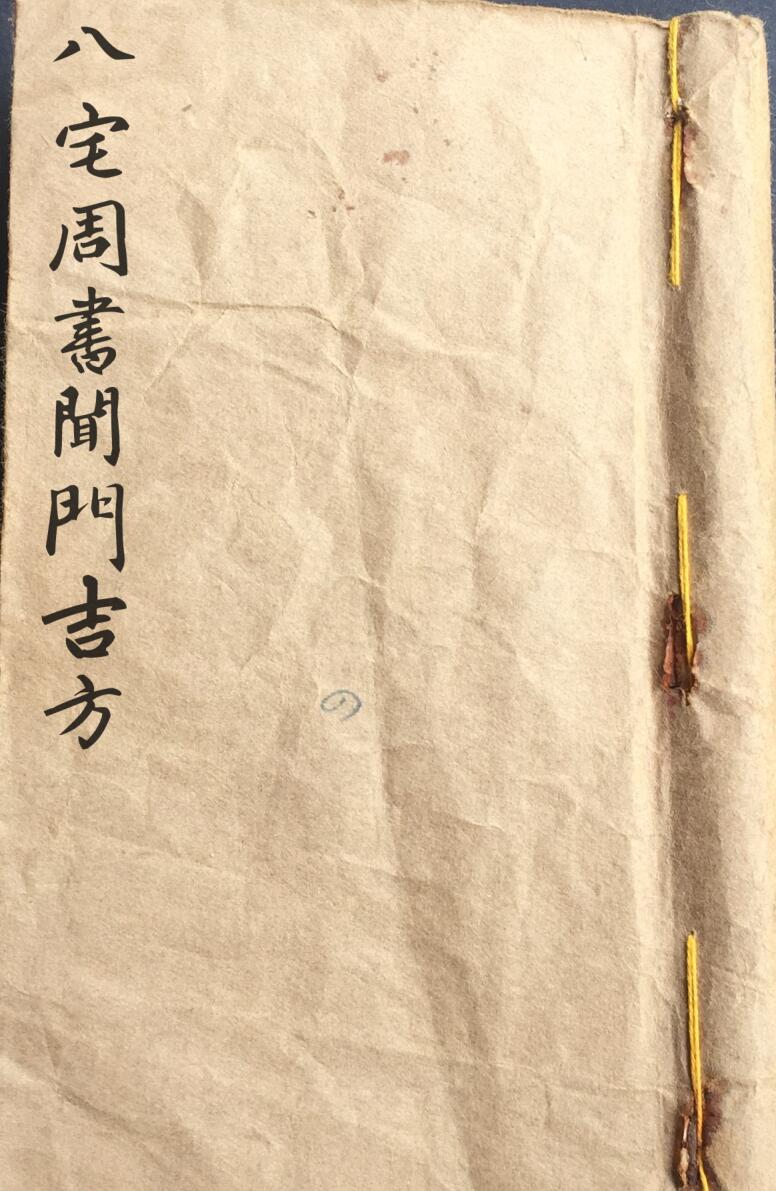 八宅周書聞門吉方
の